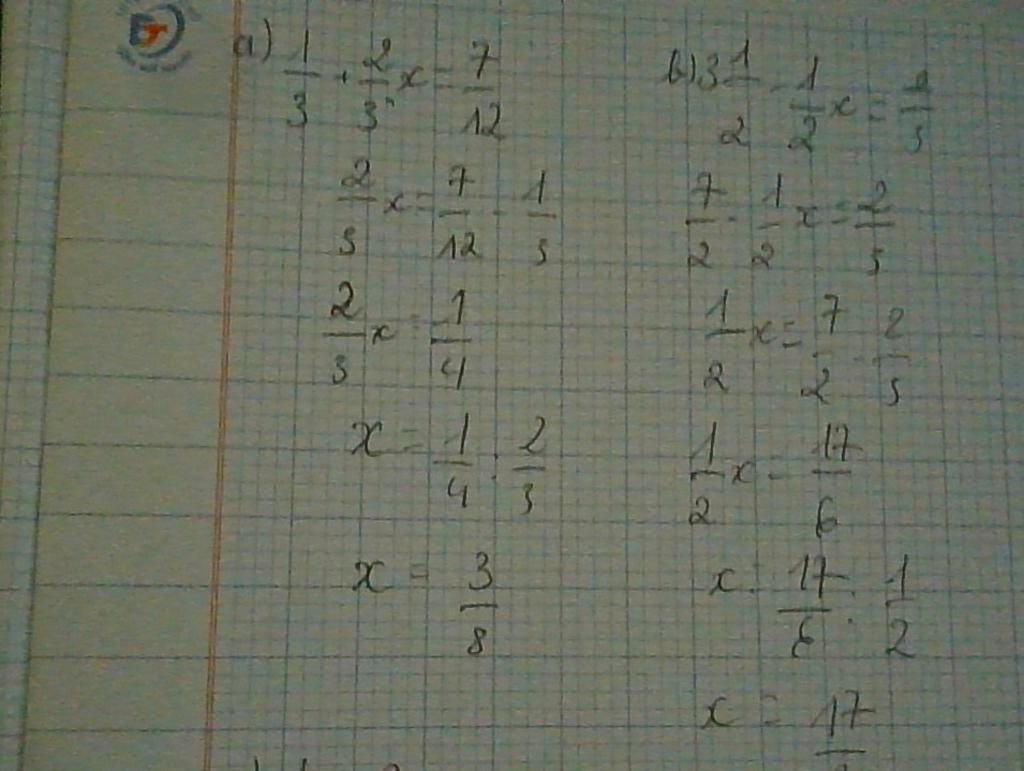 a) 1/3 + 2/3 x = 7/12
2/3 x = 7/12 - 1/3
2/3 x = 1/4
x = 1/4 : 2/3
x = 3/8
b) 3 1/2 - 1/2 x = 2/3
7/2 - 1/2 x = 2/3
1/2 x = 7/2 - 2/3
1/2 x = 17/6
x = 17/6 : 1/2
x = 17/